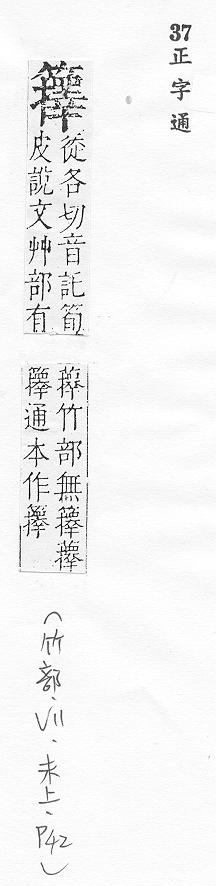 37正字通
籜
從各切音託筍
皮說文艸部有
蘀竹部無籜蘀
籜通本作
(竹部·VII·未上·P42)